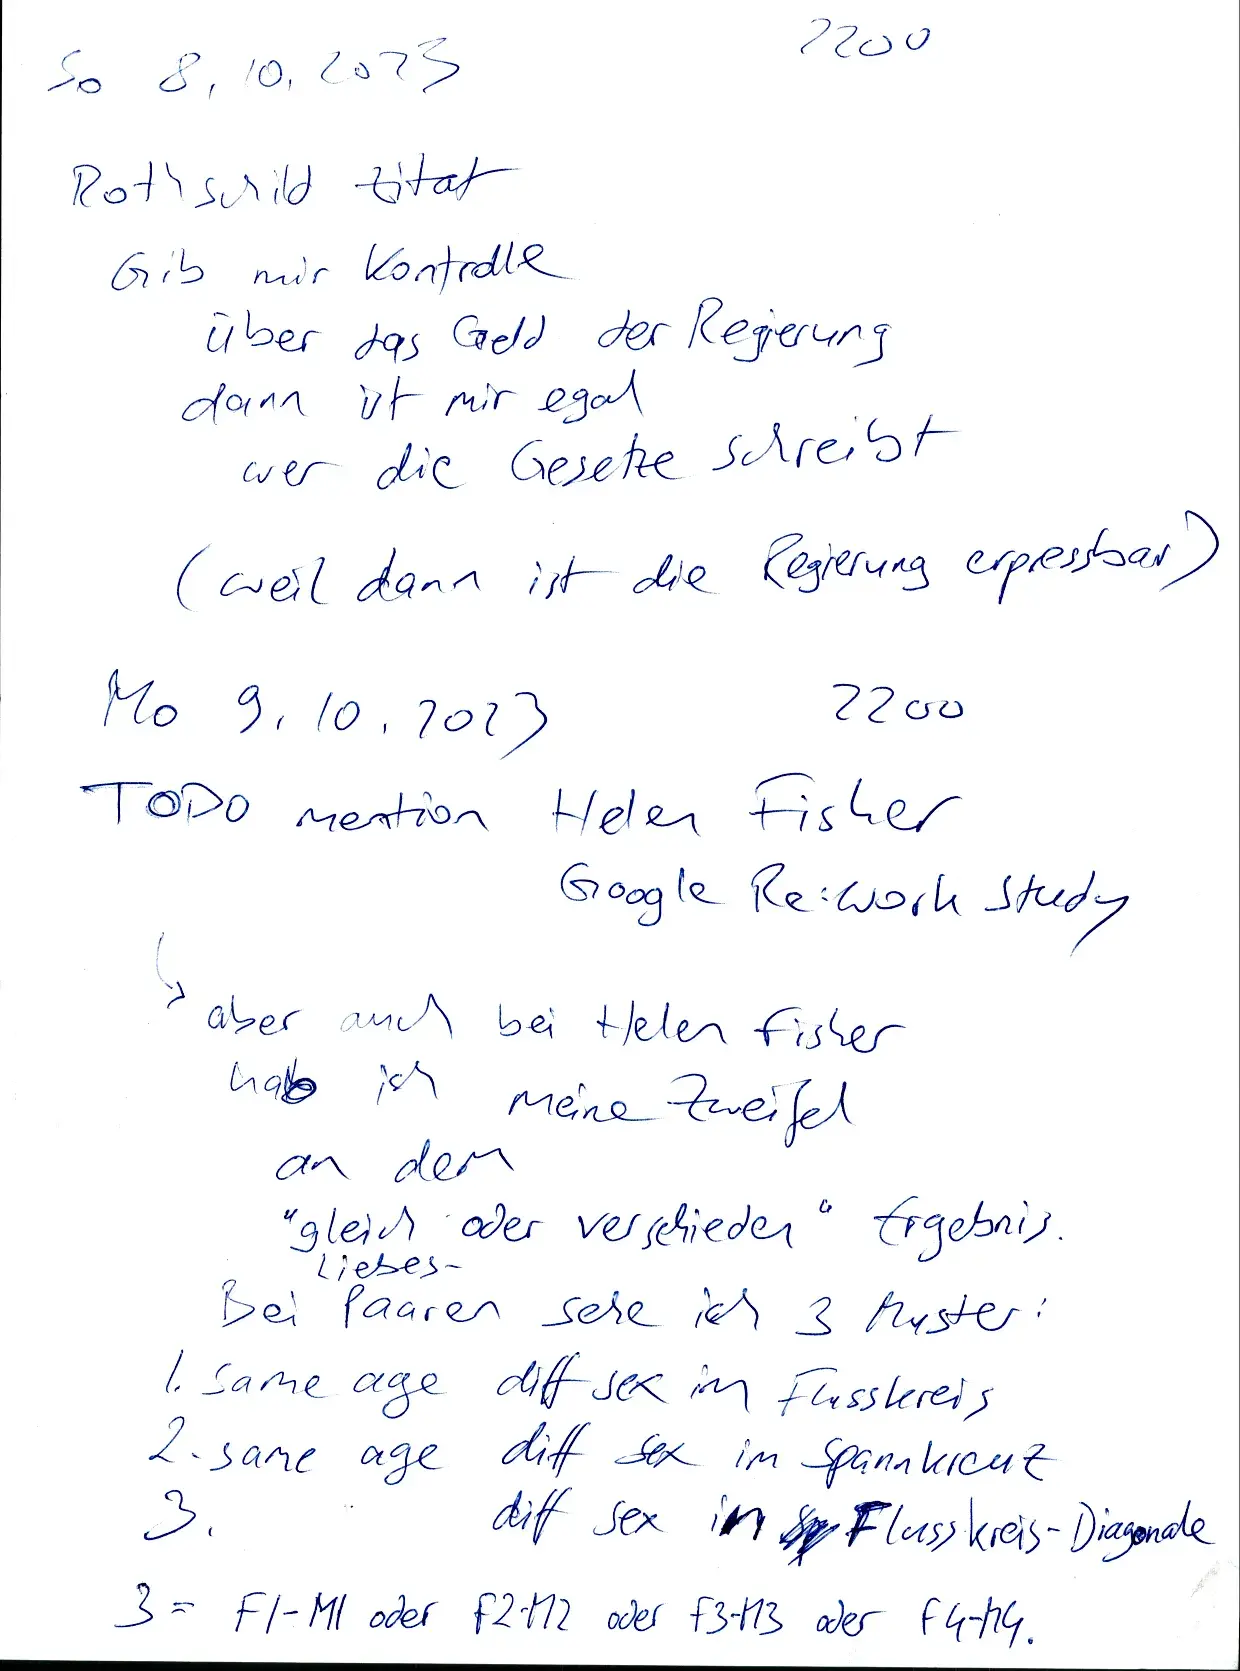 So 8.10.2023 2200
Rothschild Zitat
Gib mir Kontrolle
über das Geld der Regierung
dann ist mir egal
wer die Gesetze schreibt
(weil dann ist die Regierung erpressbar)
Mo 9.10.2023 2200
TODO mention Helen Fisher
Google Re:Work Study
↳ aber auch bei Helen Fisher
hab ich meine Zweifel
an dem
"gleich oder verschieden" Ergebnis.
Liebes-
Bei Paaren sehe ich 3 Muster:
1. same age diff sex im Flusskreis
2. same age diff sex im Spannkreuz
3. diff sex in Flusskreis-Diagonale
3 = F1-M1 oder F2-M2 oder F3-M3 oder F4-M4.